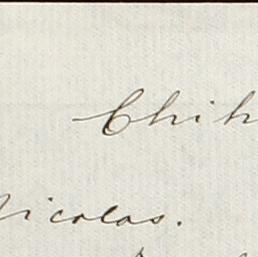 Chih
Nicolas.